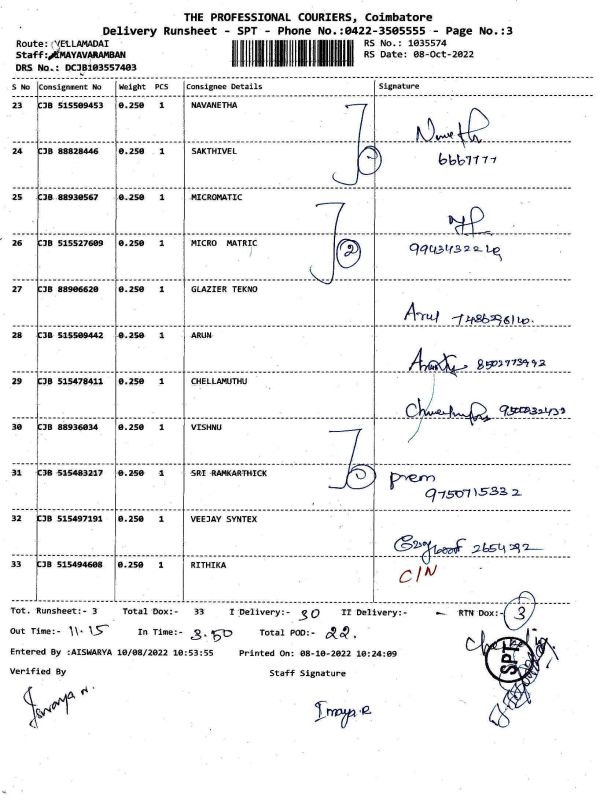 THE PROFESSIONAL COURIERS, Coimbatore
Delivery Runsheet - SPT - Phone No.:0422-3505555 - Page No.:3
Route: VELLAMADAI
RS No.: 1035574
Staff: IMAYAVARAMBAN
RS Date: 08-Oct-2022
DRS No.: DCJB103557403
S No Consignment No Weight PCS Consignee Details Signature
23 CJB 515509453 0.250 1 NAVANETHA
6667777
24 CJB 88828446 0.250 1 SAKTHIVEL
25 CJB 88930567 0.250 1 MICROMATIC
26 CJB 515527609 0.250 1 MICRO MATRIC
2
27 CJB 88906620 0.250 1 GLAZIER TEKNO
Arul
28 CJB 515509442 0.250 1 ARUN
8502773992
29 CJB 515478411 0.250 1 CHELLAMUTHU
30 CJB 88936034 0.250 1 VISHNU
31 CJB 515483217 0.250 1 SRI RAMKARTHICK
prem
9750715332
32 CJB 515497191 0.250 1 VEEJAY SYNTEX
2654292
33 CJB 515494608 0.250 1 RITHIKA
C/N
Tot. Runsheet:- 3 Total Dox:- 33 I Delivery:- 30 II Delivery:- - RTN Dox:- 3
Out Time:- 11.15 In Time:- 3.50 Total POD:- 22.
Entered By :AISWARYA 10/08/2022 10:53:55 Printed On: 08-10-2022 10:24:09
Verified By Staff Signature
SPT
Iswarya.n.
Imaya.R